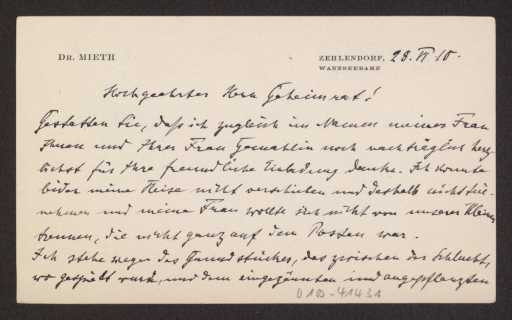 DR. MIETH
ZEHLENDORF, 28. VI 10.
WANNSEEBAHN
Hochgeehrter Herr Geheimrat!
Gestatten Sie, daß ich zugleich im Namen meiner Frau
Ihnen und Ihrer Frau Gemahlin noch nachträglich herz-
lichst für Ihre freundliche Einladung danke. Ich konnte
leider meine Reise nicht verschieben und deshalb nicht teil-
nehmen und meine Frau wollte sich nicht von unserer Kleinen
trennen, die nicht ganz auf dem Posten war.
Ich stehe wegen des Grundstückes, das zwischen der Schlucht,
wo gespült wurde, und dem eingezäunten und angepflanzten